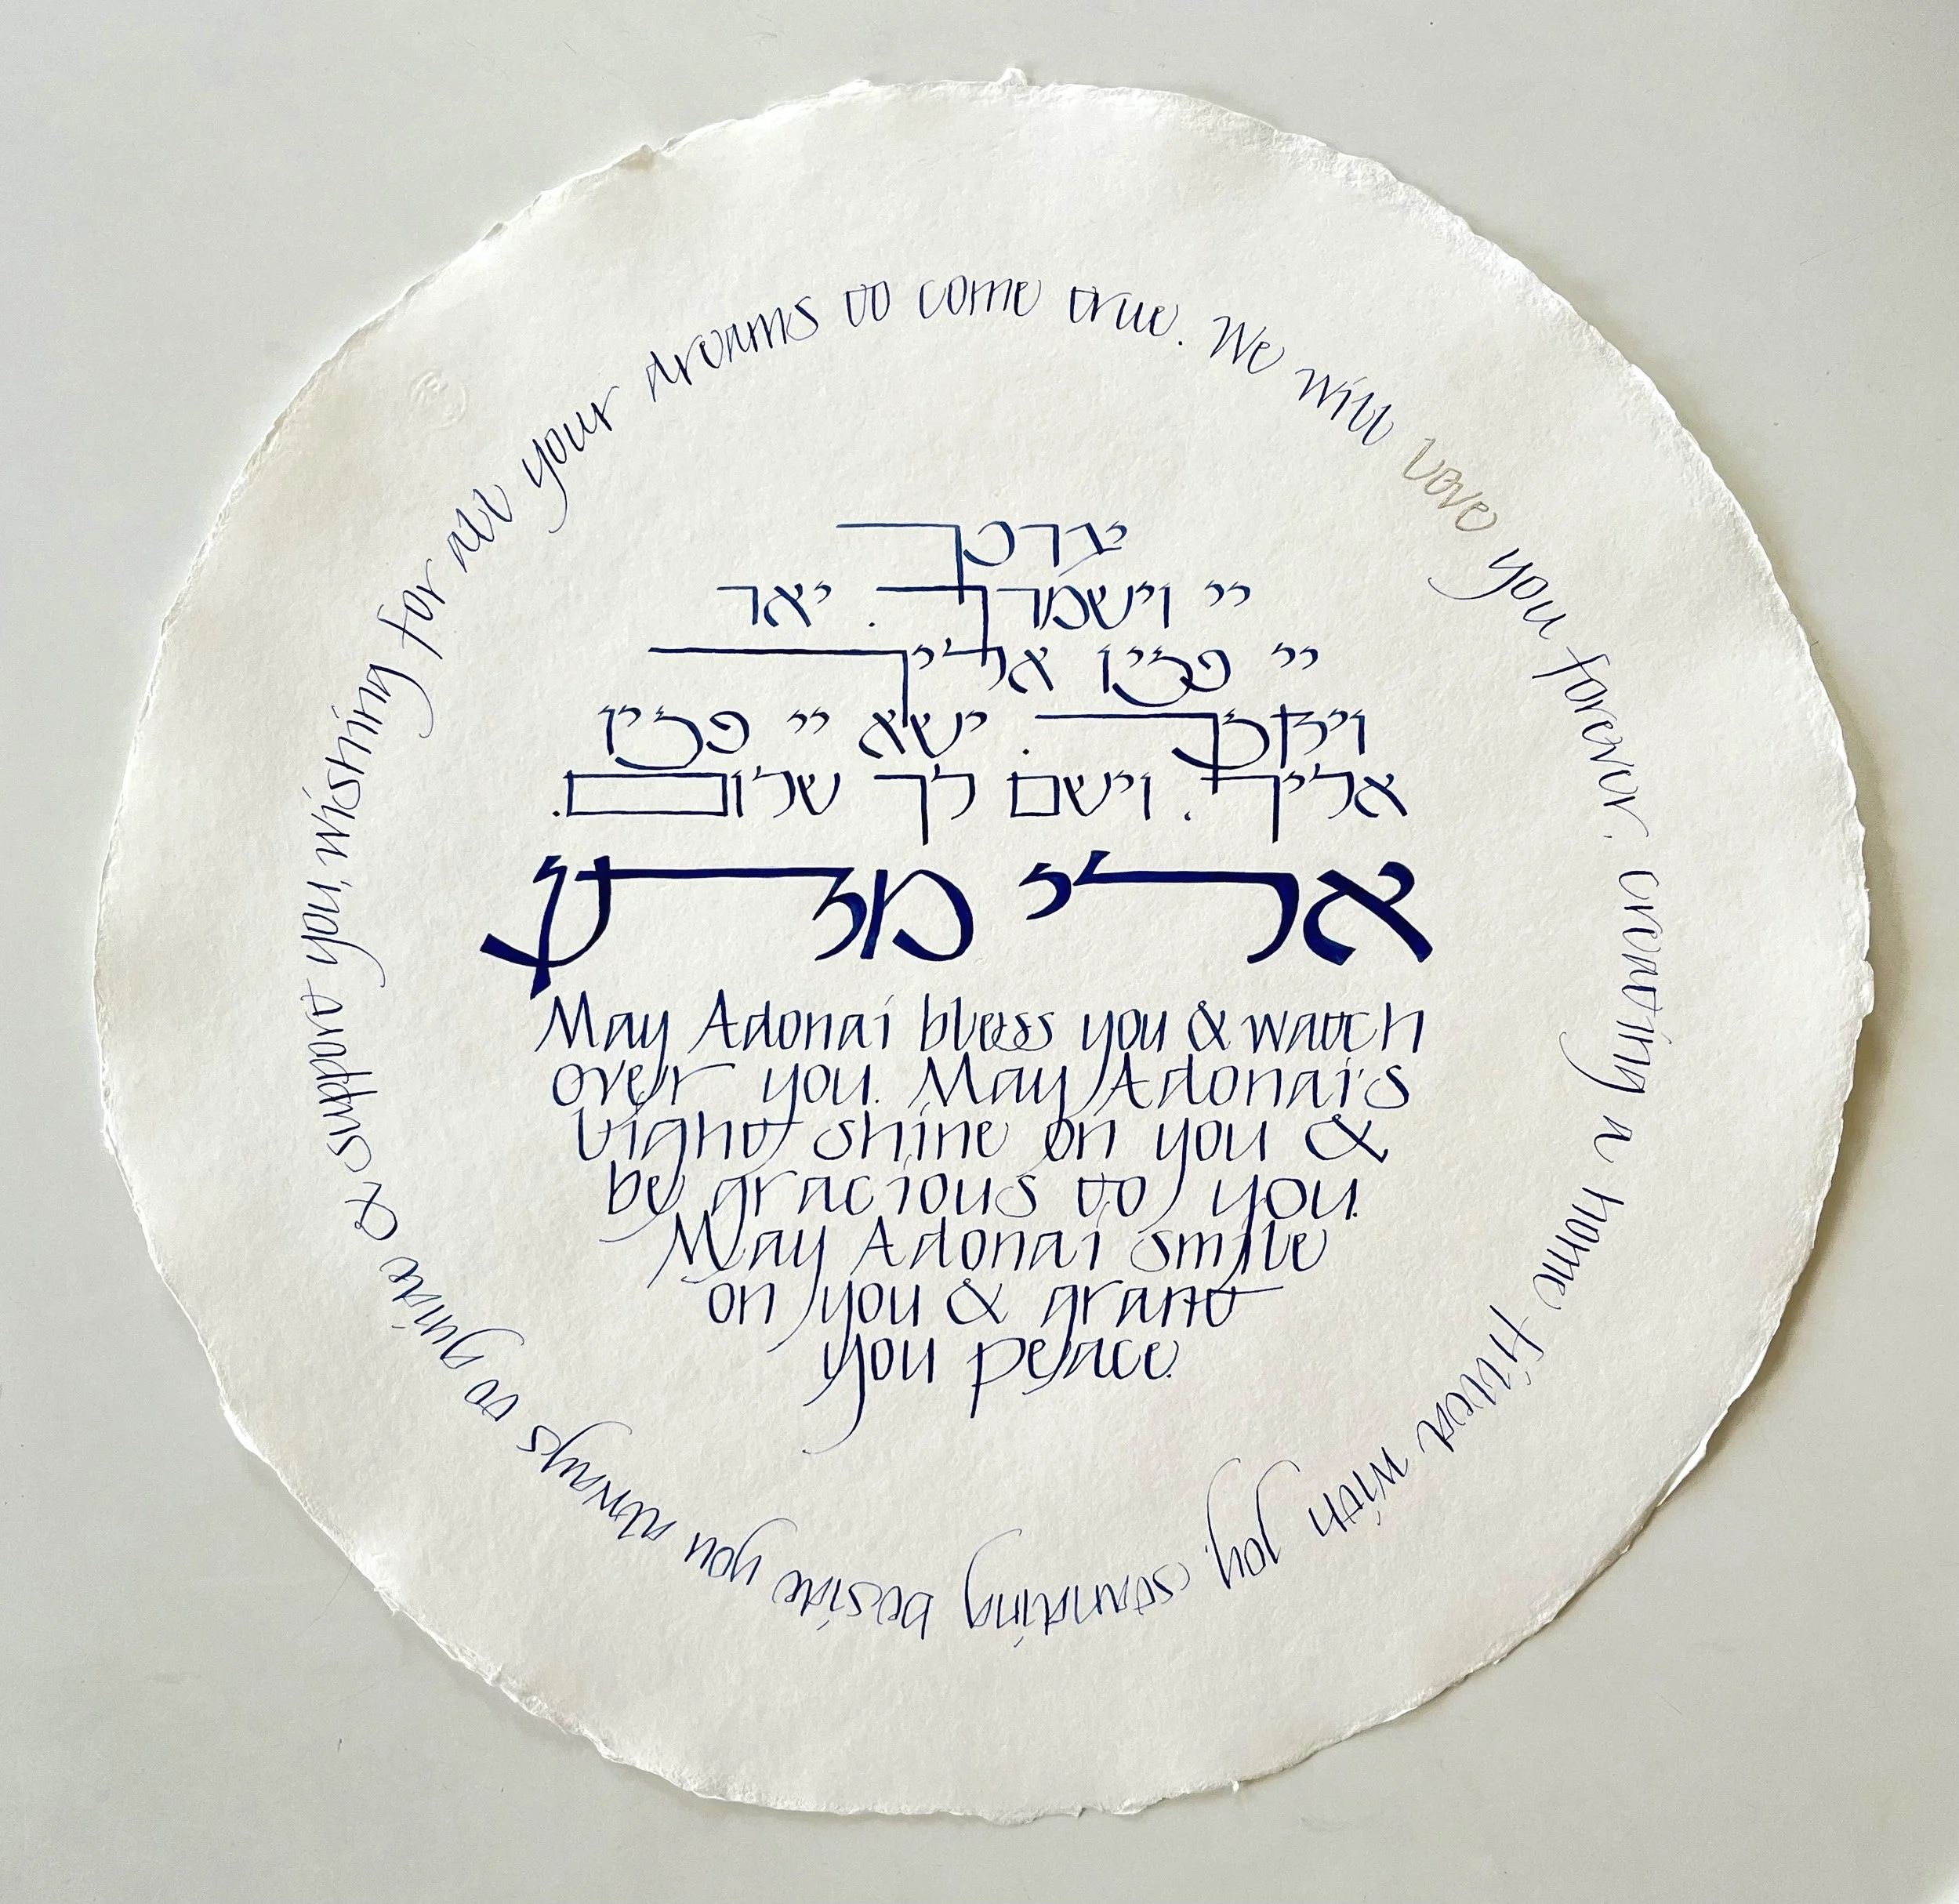 We will love you forever, creating a home filled with joy, standing beside you always to guide & support you, wishing for all your dreams to come true.
יברכך
יי וישמרך. יאר
יי פניו אליך
ויחנך. ישא יי פניו
אליך. וישם לך שלום.
אלי
May Adonai bless you & watch
over you. May Adonai's
light shine on you &
be gracious to you.
May Adonai smile
on you & grant
you peace.